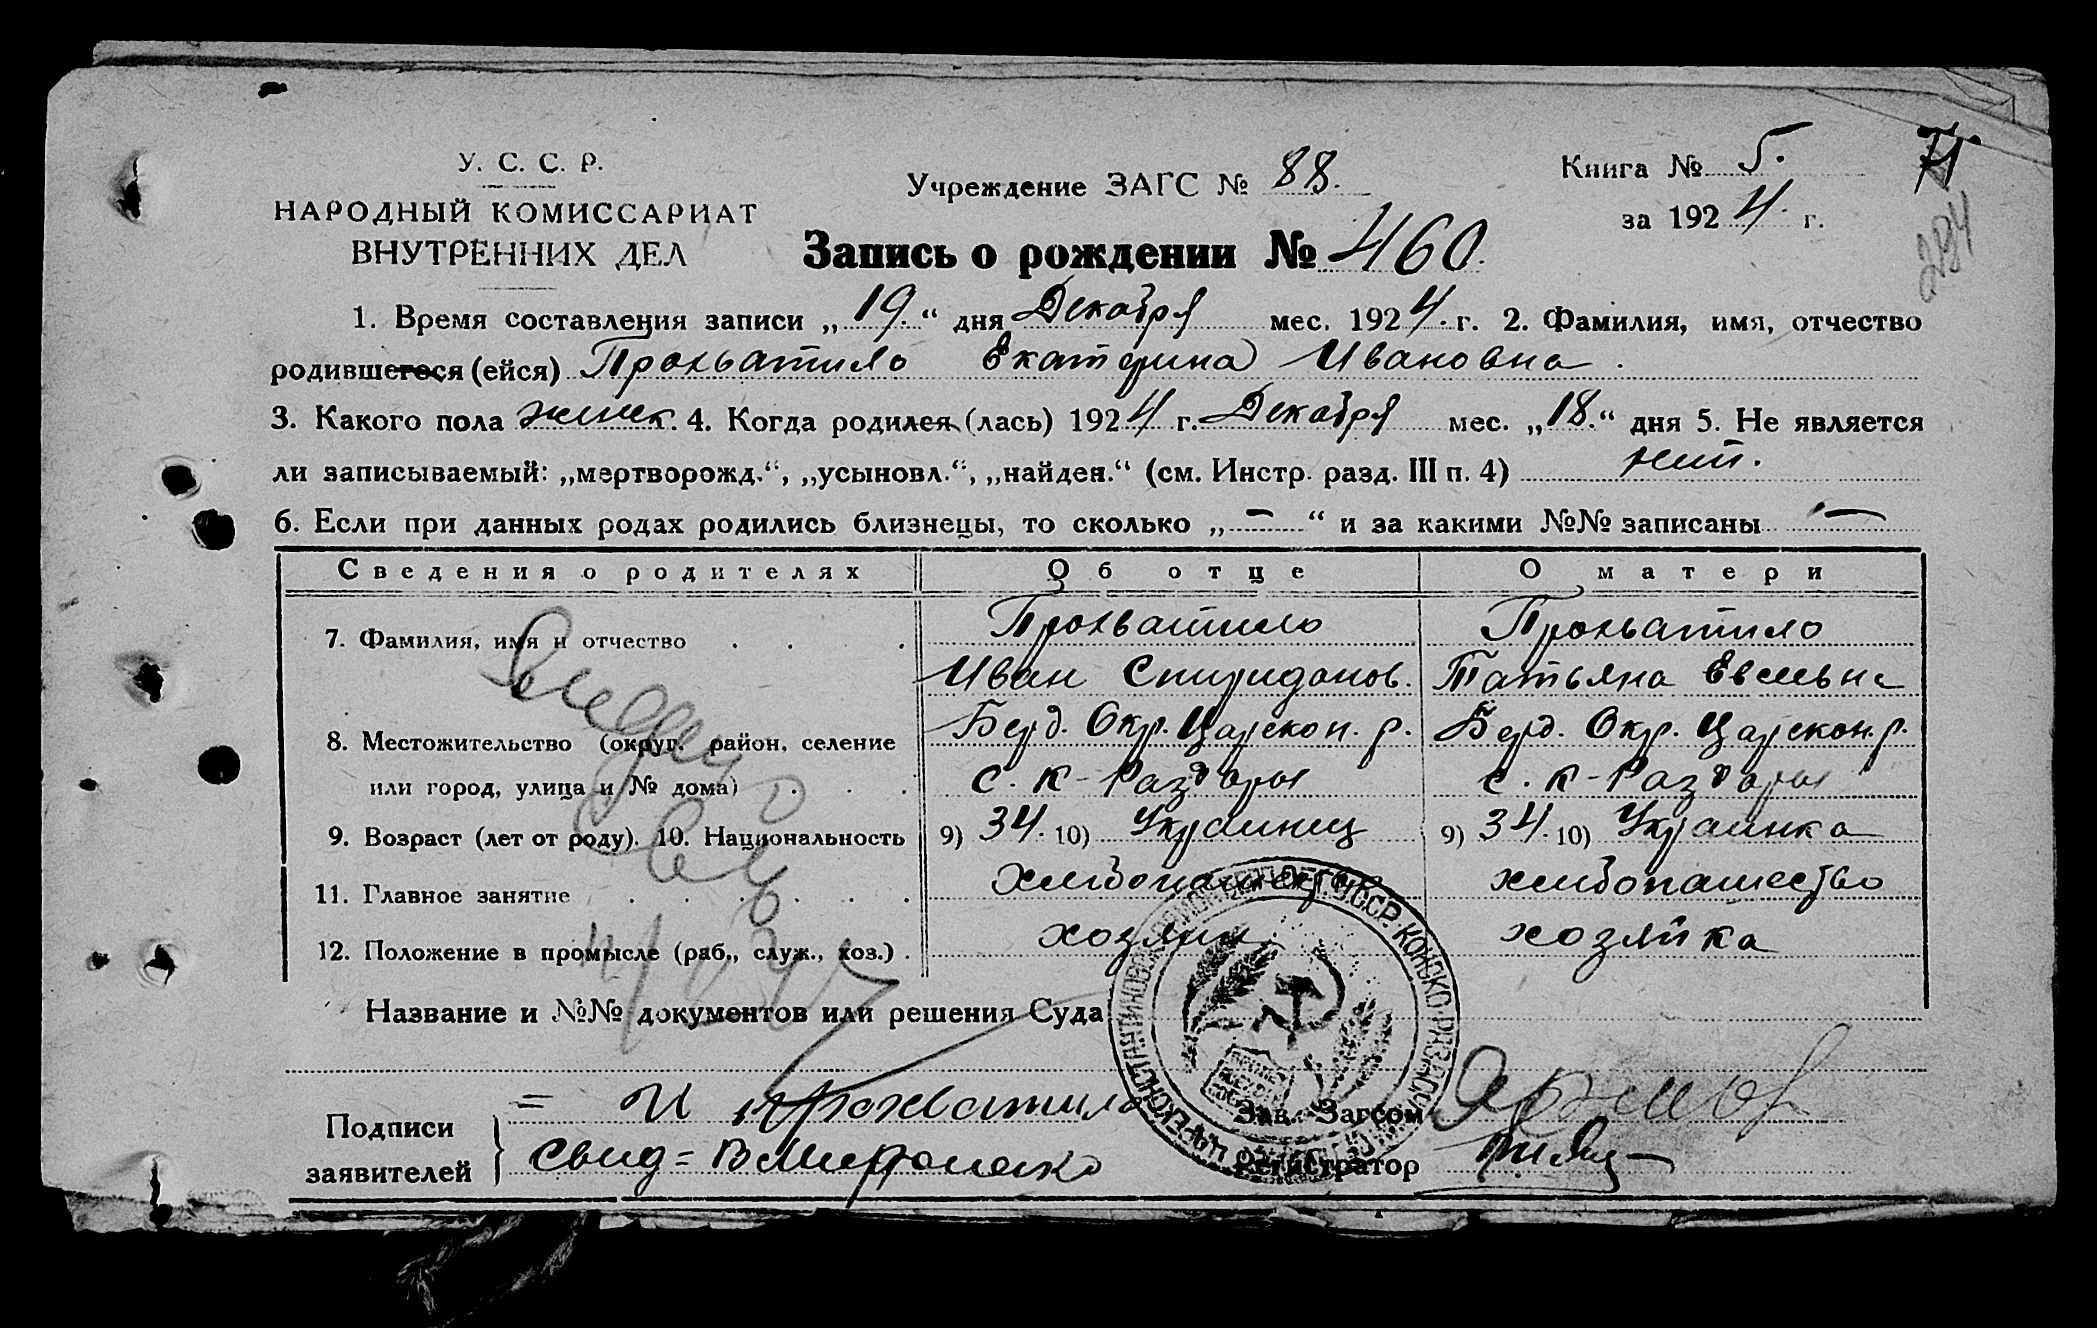 У. С. С. Р.
НАРОДНЫЙ КОМИССАРИАТ
ВНУТРЕННИХ ДЕЛ
Учреждение ЗАГС № 88.
Книга № 5.
за 1924 г.
71
284
Запись о рождении № 460.
1. Время составления записи „19.“ дня Декабря мес. 1924. г. 2. Фамилия, имя, отчество
родившегося (ейся) Прохватило Екатерина Ивановна.
3. Какого пола женск. 4. Когда родился (лась) 1924 г. Декабря мес. „18.“ дня 5. Не является
ли записываемый: „мертворожд.“, „усыновл.“, „найден.“ (см. Инстр. разд. III п. 4) нет.
6. Если при данных родах родились близнецы, то сколько „—“ и за какими №№ записаны —
Сведения о родителях Об отце О матери
7. Фамилия, имя и отчество Прохватило Прохватило
Иван Спиридонов. Татьяна
8. Местожительство (округ, район, селение Берд. Окр. Царекон. р. Берд. Окр. Царекон. р.
или город, улица и № дома) с. К-Раздоры с. К-Раздоры
9. Возраст (лет от роду). 10. Национальность 9) 34. 10) Украинец 9) 34. 10) Украинка
11. Главное занятие хлебопашество хлебопашество
12. Положение в промысле (раб., служ., хоз.) хозяин. хозяйка
Название и №№ документов или решения Суда
Подписи
заявителей
= И Прохватило
Свид = В Мироненко
Зав. Загсом
Регистратор